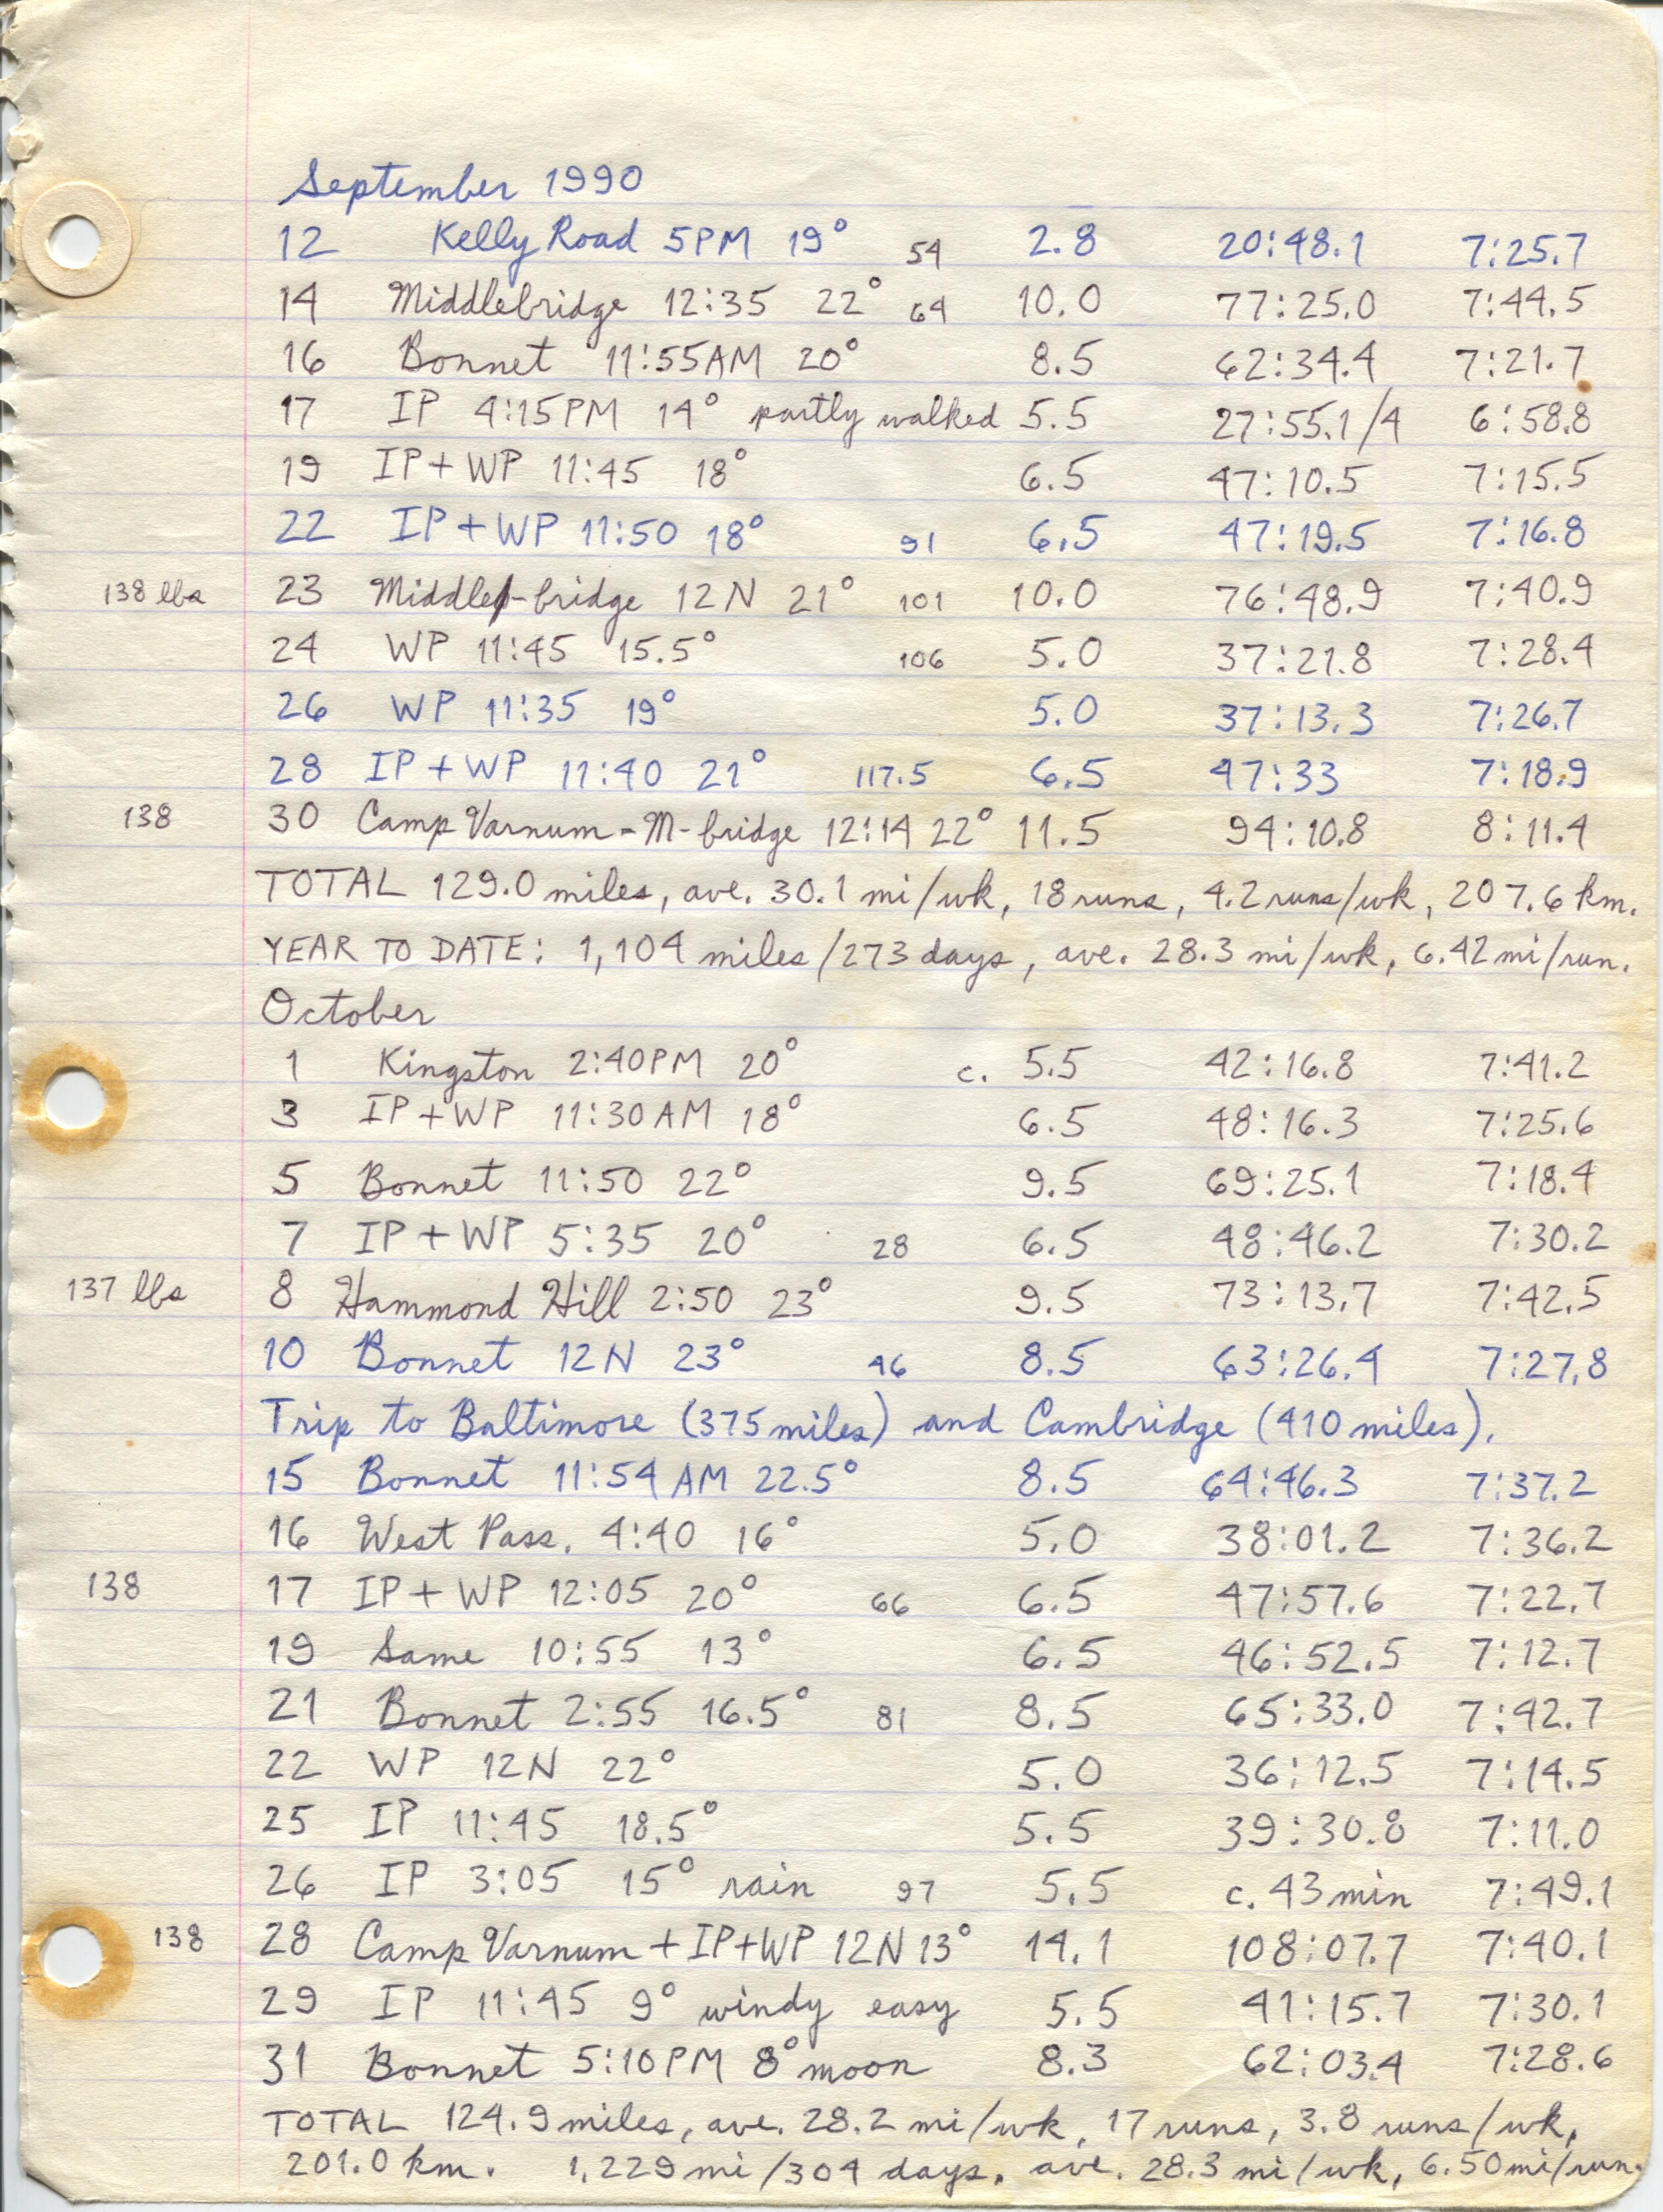 September 1990
12 Kelly Road 5PM 19° 54 2.8 20:48.1 7:25.7
14 Middlebridge 12:35 22° 64 10.0 77:25.0 7:44.5
16 Bonnet 11:55AM 20° 8.5 62:34.4 7:21.7
17 IP 4:15PM 14° partly walked 5.5 27:55.1/4 6:58.8
19 IP+WP 11:45 18° 6.5 47:10.5 7:15.5
22 IP+WP 11:50 18° 91 6.5 47:19.5 7:16.8
138 lbs 23 Middle-bridge 12N 21° 101 10.0 76:48.9 7:40.9
24 WP 11:45 15.5° 106 5.0 37:21.8 7:28.4
26 WP 11:35 19° 5.0 37:13.3 7:26.7
28 IP+WP 11:40 21° 117.5 6.5 47:33 7:18.9
138 30 Camp Varnum-M-bridge 12:14 22° 11.5 94:10.8 8:11.4
TOTAL 129.0 miles, ave. 30.1 mi/wk, 18 runs, 4.2 runs/wk, 207.6 km.
YEAR TO DATE: 1,104 miles/273 days, ave. 28.3 mi/wk, 6.42 mi/run.
October
1 Kingston 2:40PM 20° c. 5.5 42:16.8 7:41.2
3 IP+WP 11:30AM 18° 6.5 48:16.3 7:25.6
5 Bonnet 11:50 22° 9.5 69:25.1 7:18.4
7 IP+WP 5:35 20° 28 6.5 48:46.2 7:30.2
137 lbs 8 Hammond Hill 2:50 23° 9.5 73:13.7 7:42.5
10 Bonnet 12N 23° 46 8.5 63:26.4 7:27.8
Trip to Baltimore (375 miles) and Cambridge (410 miles).
15 Bonnet 11:54AM 22.5° 8.5 64:46.3 7:37.2
16 West Pass. 4:40 16° 5.0 38:01.2 7:36.2
138 17 IP+WP 12:05 20° 66 6.5 47:57.6 7:22.7
19 Same 10:55 13° 6.5 46:52.5 7:12.7
21 Bonnet 2:55 16.5° 81 8.5 65:33.0 7:42.7
22 WP 12N 22° 5.0 36:12.5 7:14.5
25 IP 11:45 18.5° 5.5 39:30.8 7:11.0
26 IP 3:05 15° rain 97 5.5 c. 43 min 7:49.1
138 28 Camp Varnum+IP+WP 12N 13° 14.1 108:07.7 7:40.1
29 IP 11:45 9° windy easy 5.5 41:15.7 7:30.1
31 Bonnet 5:10PM 8° moon 8.3 62:03.4 7:28.6
TOTAL 124.9 miles, ave. 28.2 mi/wk, 17 runs, 3.8 runs/wk,
201.0 km. 1,229 mi/304 days, ave. 28.3 mi/wk, 6.50 mi/run.